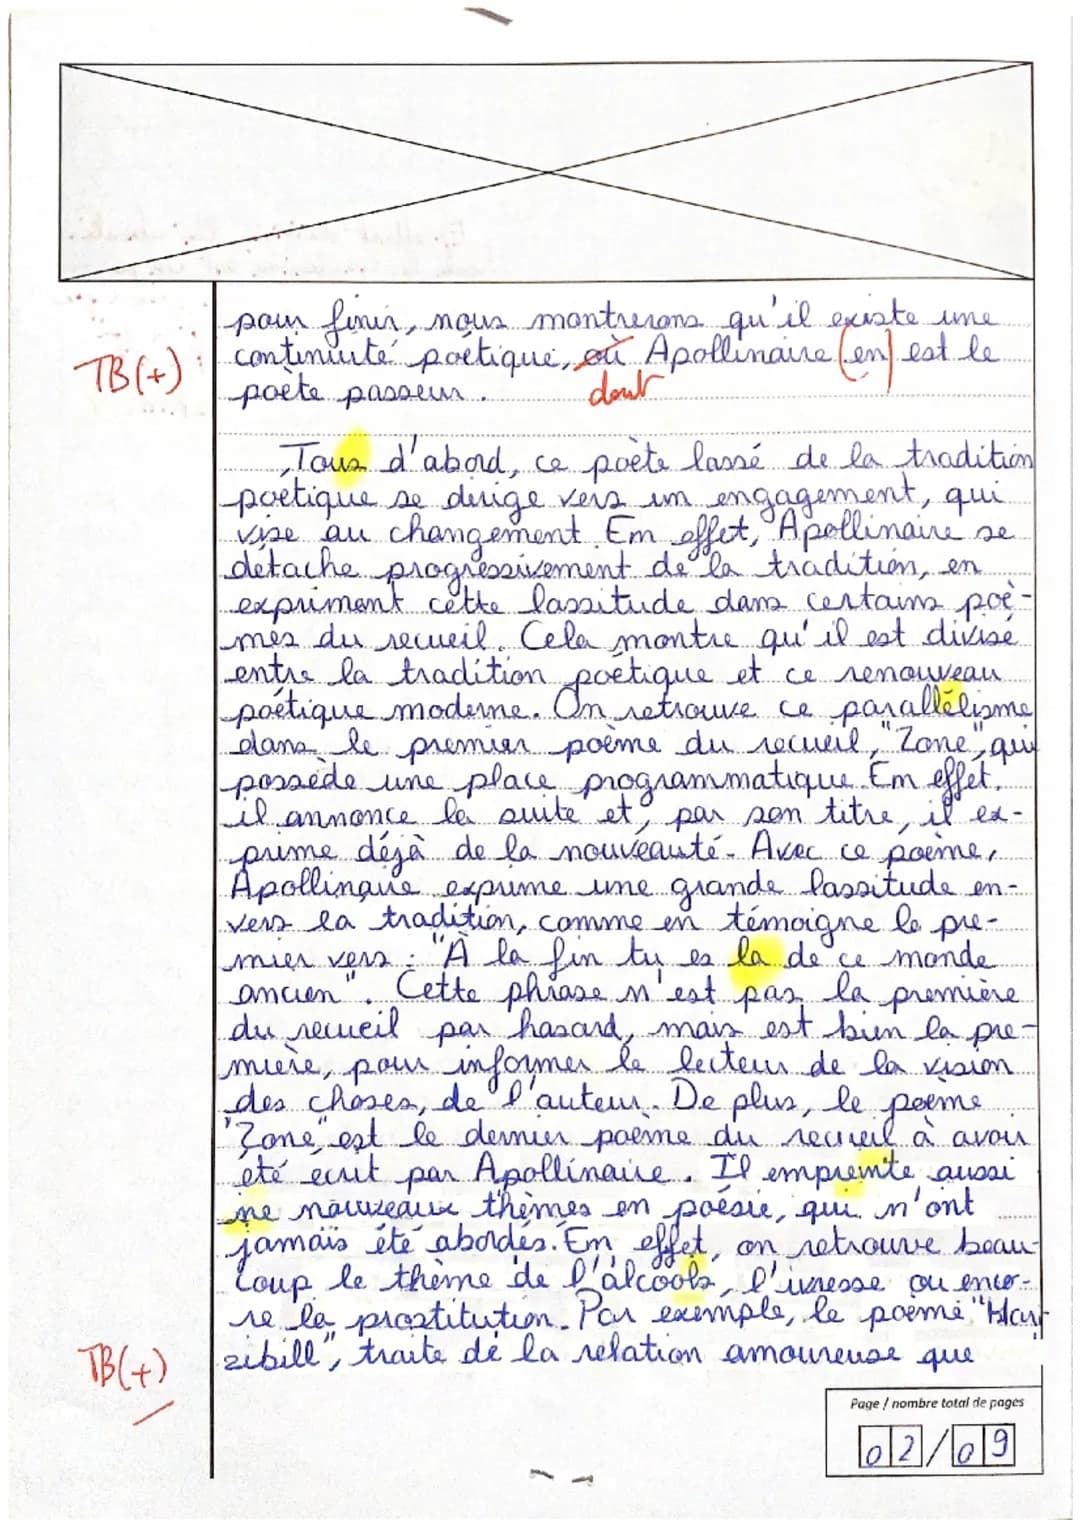 pour finir, nous montrerons qu'il existe une
TB(+)
continuité poétique, où Apollinaire (en) est le
poète passeur. dont
Tous d'abord, ce poète lassé de la tradition
poétique se dirige vers un engagement, qui
vise au changement. En effet, Apollinaire se
détache progressivement de la tradition, en
exprimant cette lassitude dans certains poè-
mes du recueil. Cela montre qu'il est divisé
entre la tradition poétique et ce renouveau
poétique moderne. On retrouve ce parallèlisme
dans le premier poème du recueil, "Zone", qui
possède une place programmatique. En effet,
il annonce la suite et, par son titre, il ex-
prime déjà de la nouveauté. Avec ce poème,
Apollinaire exprime une grande lassitude en-
vers la tradition, comme en témoigne le pre-
mier vers : "À la fin tu es la de ce monde
ancien". Cette phrase n'est pas la première
du recueil par hasard, mais est bien la pre-
mière, pour informer le lecteur de la vision
des choses, de l'auteur. De plus, le poème
"Zone", est le dernier poème du recueil à avoir
été écrit par Apollinaire. Il empreinte aussi
ne nouveaux thèmes en poésie, qui n'ont
jamais été abordés. En effet, on retrouve beau-
coup le thème de l'alcools, l'ivresse ou enco-
re la prostitution. Par exemple, le poème "Mari
zibill", traite de la relation amoureuse que
TB(+)
Page / nombre total de pages
02/09